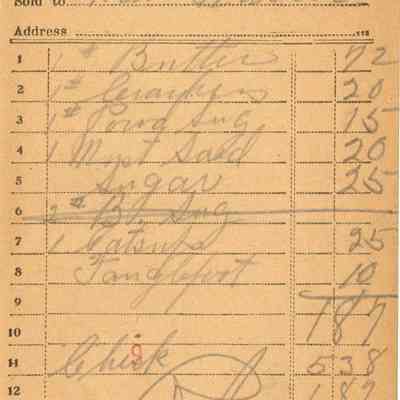 Sold to
Address
1 1# Butter 72
2 1# Crackers 20
3 1# Powd Sug 15
4 1 Must Salad 20
5 Sugar 25
6 2# B. Sug
7 1 Catsup 25
8 Tanglefoot 10
9 187
10
11 Check 538
12 187